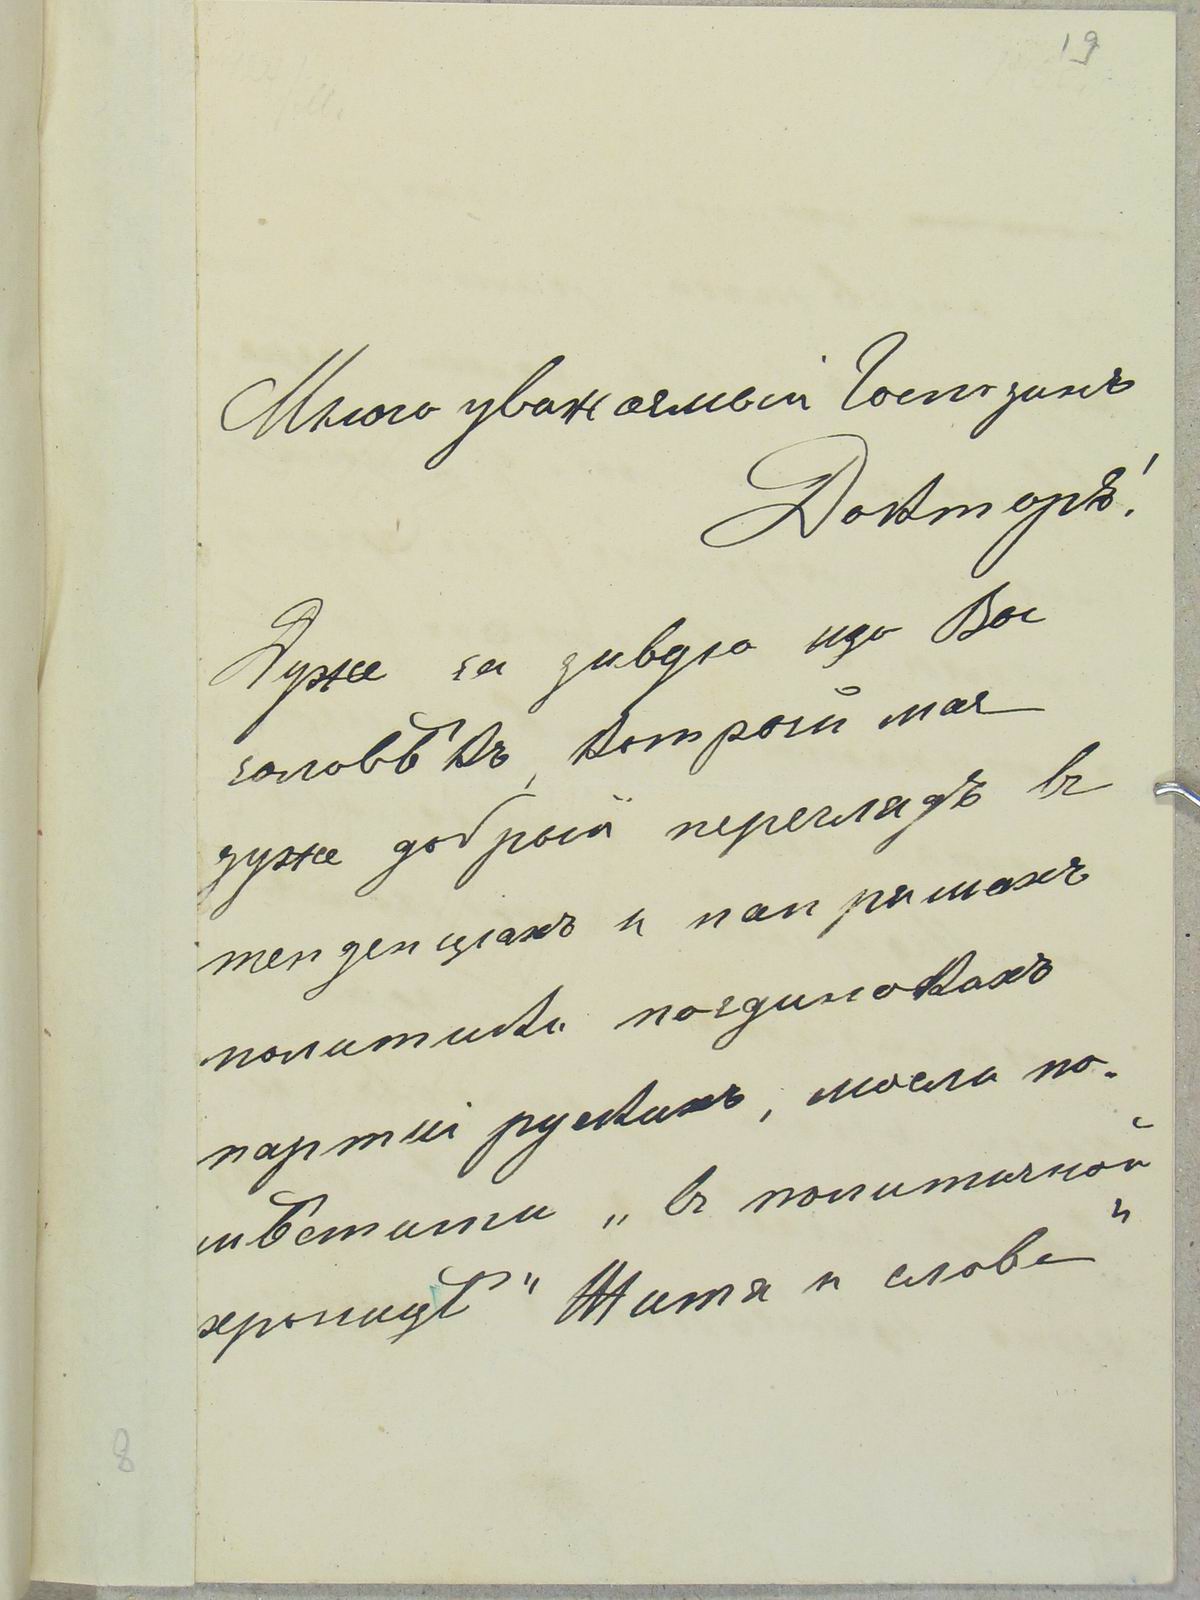 19
Много уважаемый Господинъ
Докторъ!
Дуже ся дивую що Вы
чоловѣкъ, котрый мае
дуже добрый переглядъ въ
тенденціахъ и напрямахъ
политики поединокахъ
партій рускихъ, могли по-
мѣстити „въ политичной
хроницѣ" Житя и слова"
8